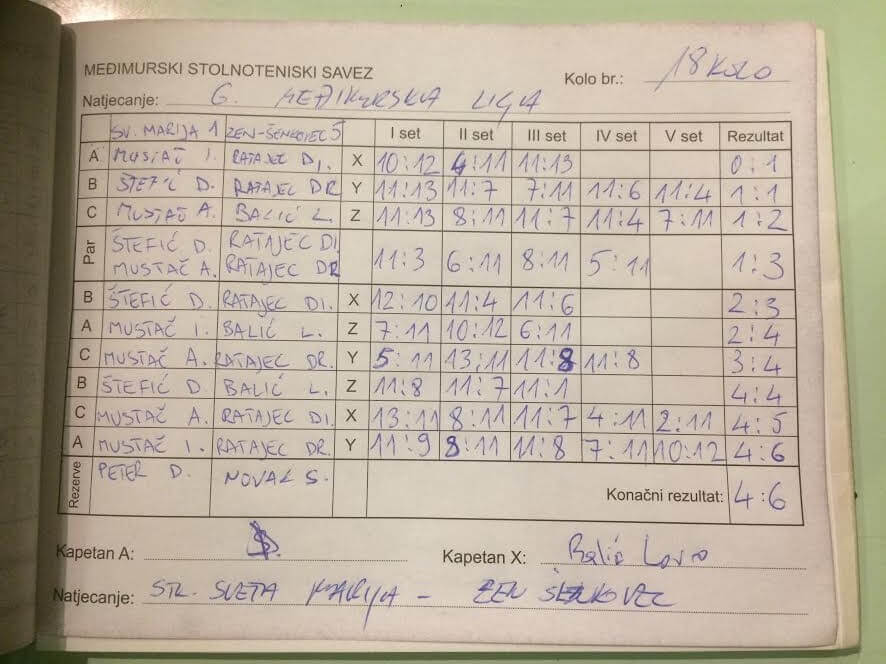 MEĐIMURSKI STOLNOTENISKI SAVEZ
Kolo br.: 18 KOLO
Natjecanje: 6. MEĐIMURSKA LIGA
SV. MARIJA 1 ZEN-ŠENKOVEC 5 I set II set III set IV set V set Rezultat
A MUSTAČ I. RATAJEC DI. X 10:12 4:11 11:13 0:1
B ŠTEFIĆ D. RATAJEC DR Y 11:13 11:7 7:11 11:6 11:4 1:1
C MUSTAČ A. BALIĆ L. Z 11:13 8:11 11:7 11:4 7:11 1:2
Par ŠTEFIĆ D. RATAJEC DI
MUSTAČ A. RATAJEC DR 11:3 6:11 8:11 5:11 1:3
B ŠTEFIĆ D. RATAJEC DI. X 12:10 11:4 11:6 2:3
A MUSTAČ I. BALIĆ L. Z 7:11 10:12 6:11 2:4
C MUSTAČ A. RATAJEC DR. Y 5:11 13:11 11:8 11:8 3:4
B ŠTEFIĆ D. BALIĆ L. Z 11:8 11:7 11:1 4:4
C MUSTAČ A. RATAJEC DI. X 13:11 8:11 11:7 4:11 2:11 4:5
A MUSTAČ I. RATAJEC DR. Y 11:9 8:11 11:8 7:11 10:12 4:6
Rezerve PETER D. NOVAK S. Konačni rezultat: 4:6
Kapetan A: Kapetan X: Balić Lovro
Natjecanje: STK. SVETA MARIJA - ZEN ŠENKOVEC